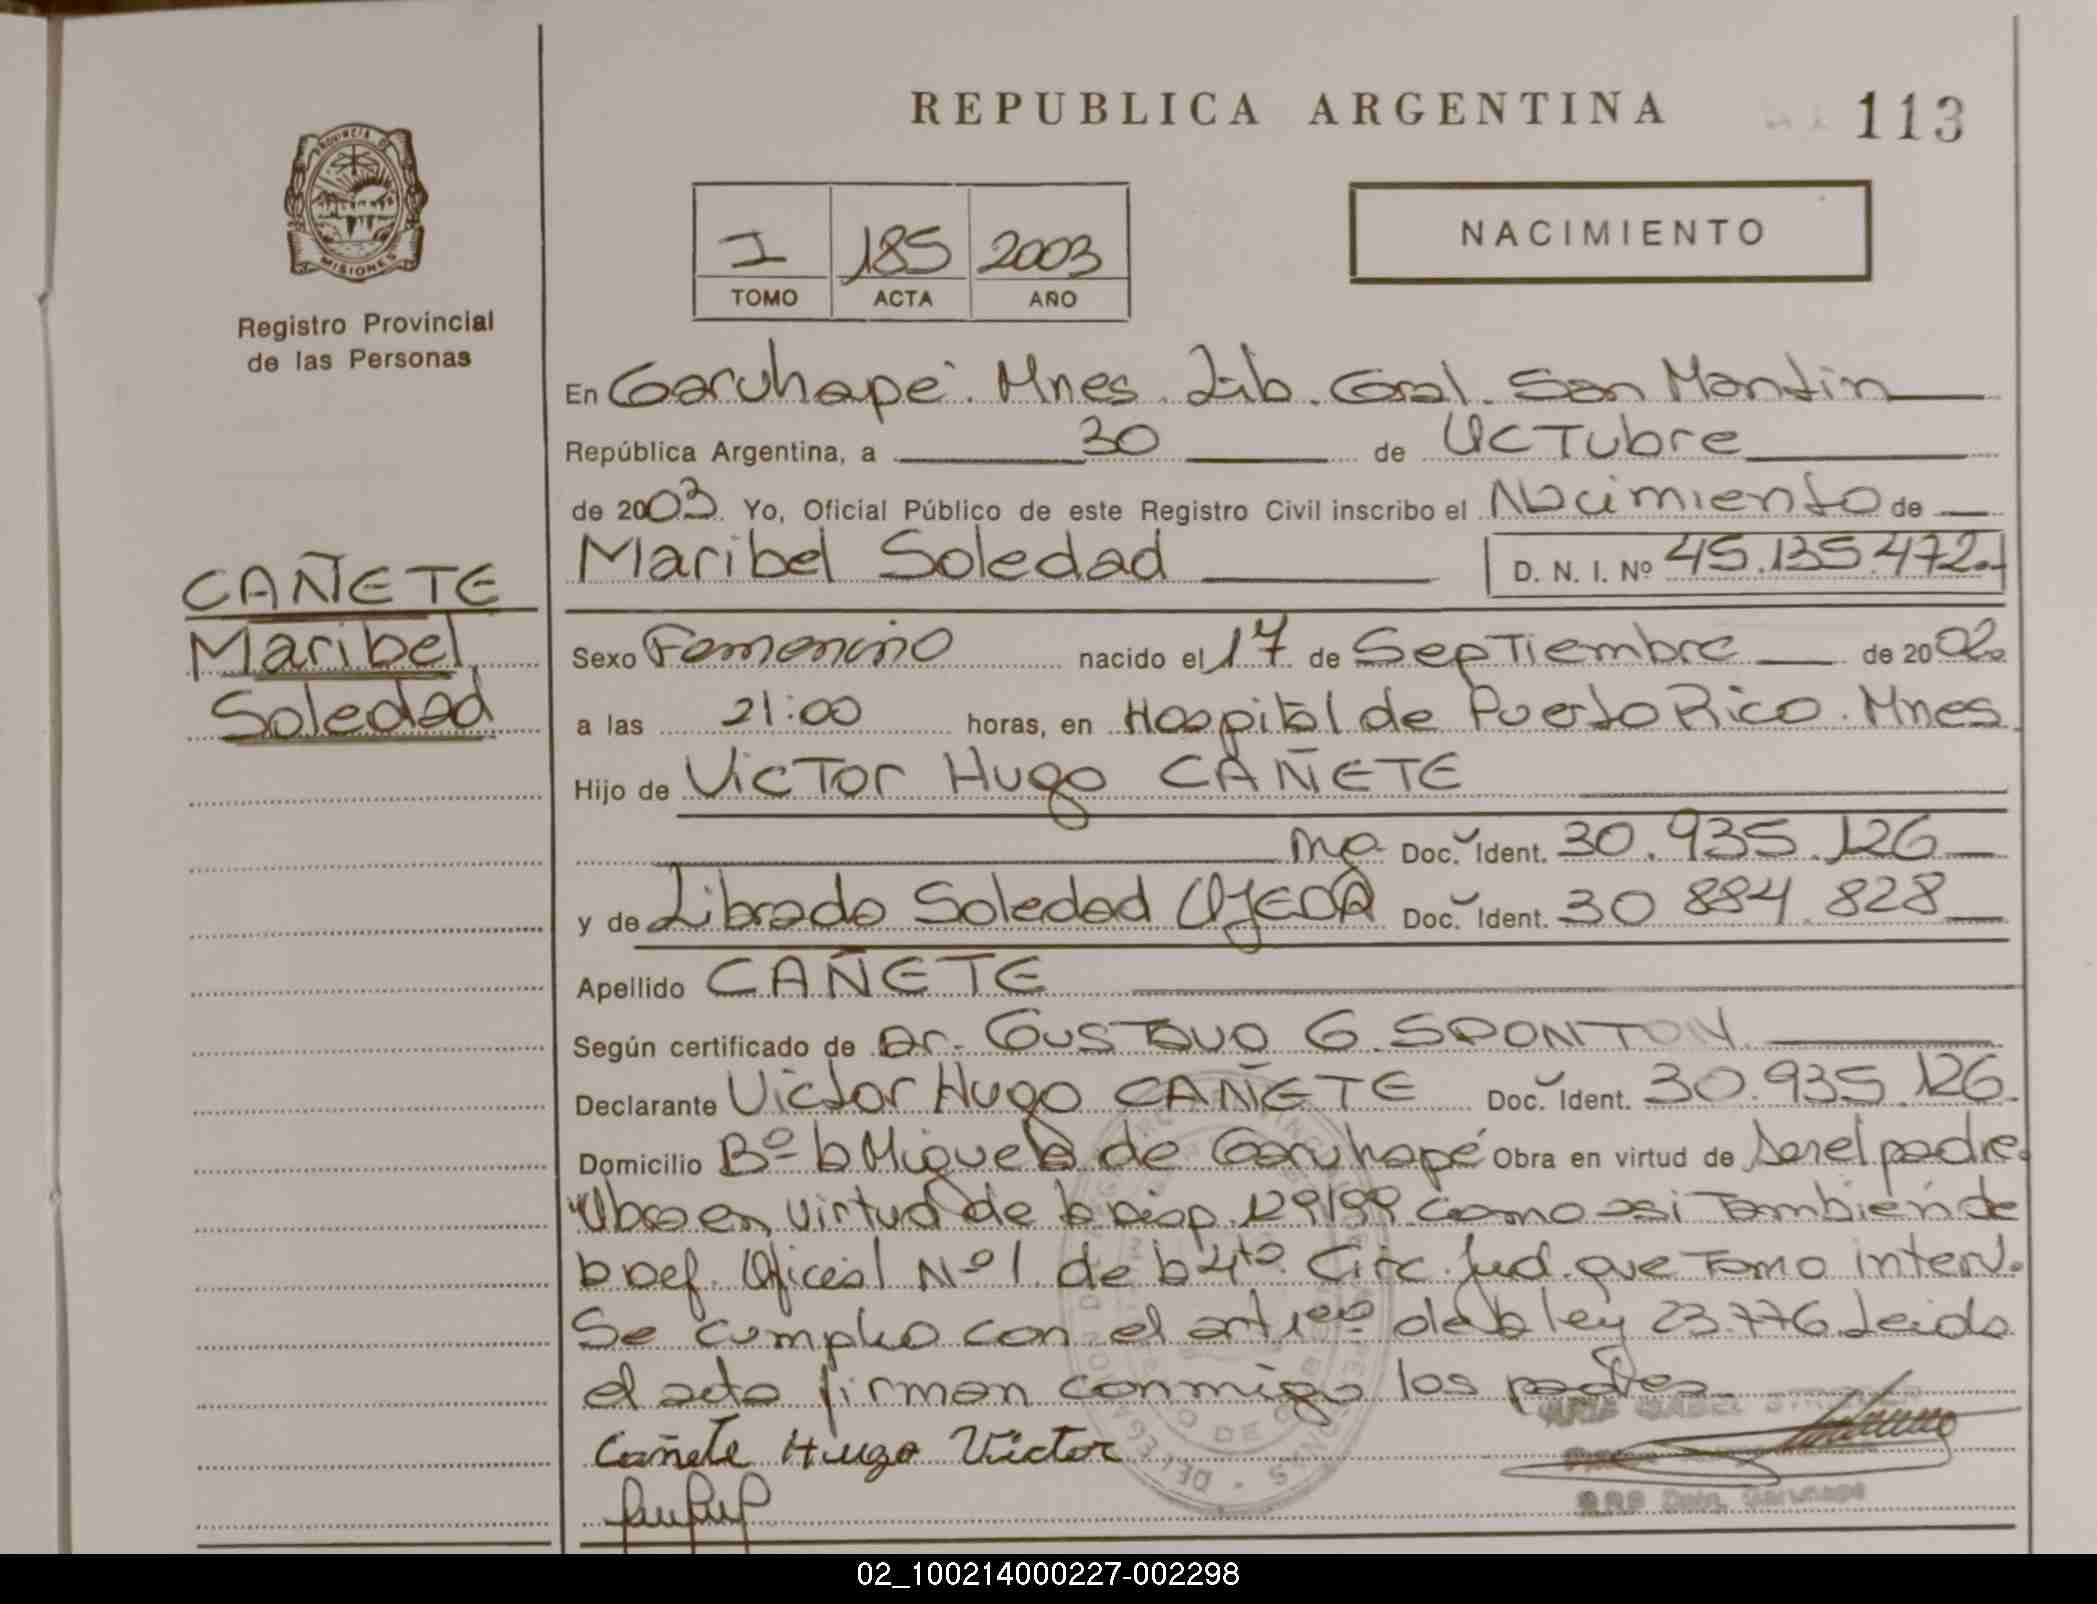 REPUBLICA ARGENTINA
113
PROVINCIA DE
MISIONES
Registro Provincial
de las Personas
I 185 2003
TOMO ACTA AÑO
NACIMIENTO
En Garuhapé. Mnes. Lib. Gral. San Martin
República Argentina, a 30 de Octubre
de 2003. Yo, Oficial Público de este Registro Civil inscribo el Nacimiento de
Maribel Soledad D. N. I. Nº 45.135.472.-
CAÑETE
Maribel
Soledad
Sexo Femenino nacido el 17 de Septiembre de 2002.
a las 21:00 horas, en Hospital de Puerto Rico. Mnes
Hijo de Victor Hugo CAÑETE
Doc. Ident. 30.935.126
y de Librada Soledad OJEDA Doc. Ident. 30 884.828
Apellido CAÑETE
Según certificado de Dr. Gustavo G. SPONTON
Declarante Victor Hugo CAÑETE Doc. Ident. 30.935.126
Domicilio Bº la Miguela de Garuhapé Obra en virtud de Ser el padre.
Obra en virtud de la Disp. 129/99 como asi Tambien de
la Def. Oficial Nº 1 de la 4ta Circ. Jud. que Tomo interv.
Se cumplio con el art 1ero de la ley 23.776 Leida
el acta firman conmigo los padres.
Cañete Hugo Victor
Garuhape
02_100214000227-002298